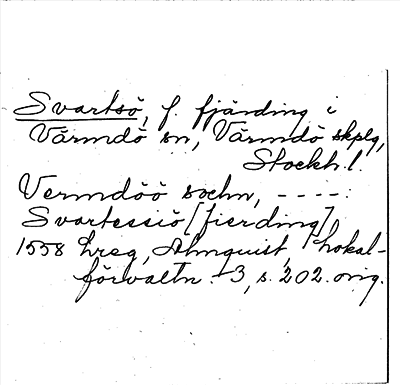 Svartsö, f. fjärding i
Värmdö sn, Värmdö skplg,
Stockh. l.
Vermdöö sochn, - - - - :
Svartessiö [fierding],
1558 hreg, Almquist, Lokal-
förvaltn. 3, s. 202. orig.